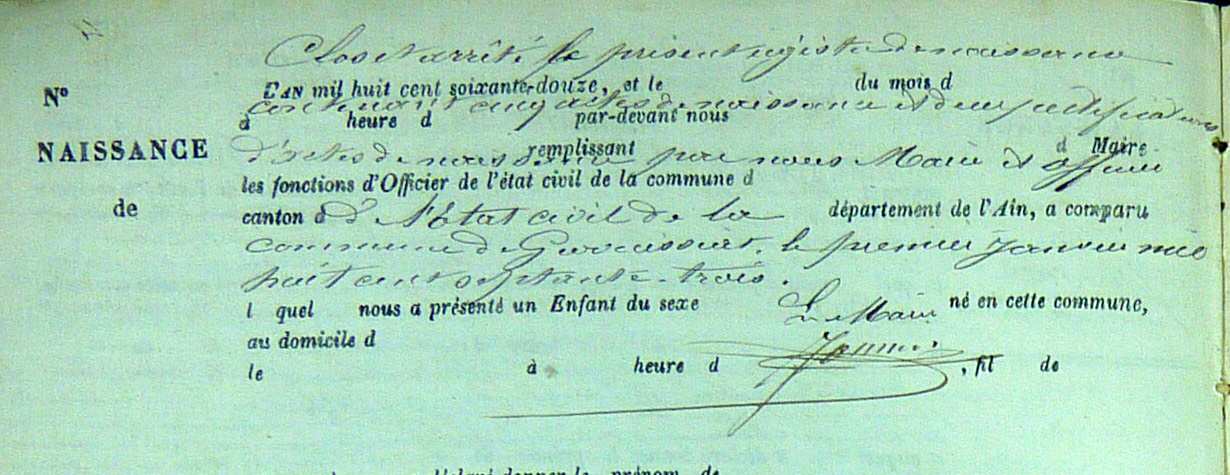 Clos et arrêté le présent registre de naissance
N° L'AN mil huit cent soixante-douze, et le du mois d
contenant cinq actes de naissance et deux rectifications
à heure d par-devant nous
NAISSANCE remplissant d Maire
d'actes de naissance par nous Maire et officier
les fonctions d'Officier de l'état civil de la commune d
de canton d département de l'Ain, a comparu
de l'Etat civil de la
commune de le premier Janvier mil
huit cent septante-trois.
l quel nous a présenté un Enfant du sexe né en cette commune,
Le Maire
au domicile d
le à heure d , fil de
prénom de